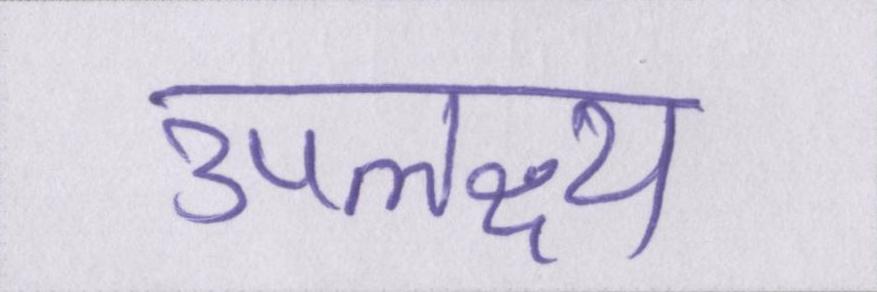 उपलक्ष्य